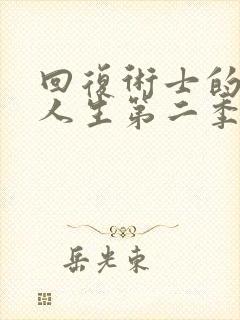 回復術士的
人生第二季
岳光東